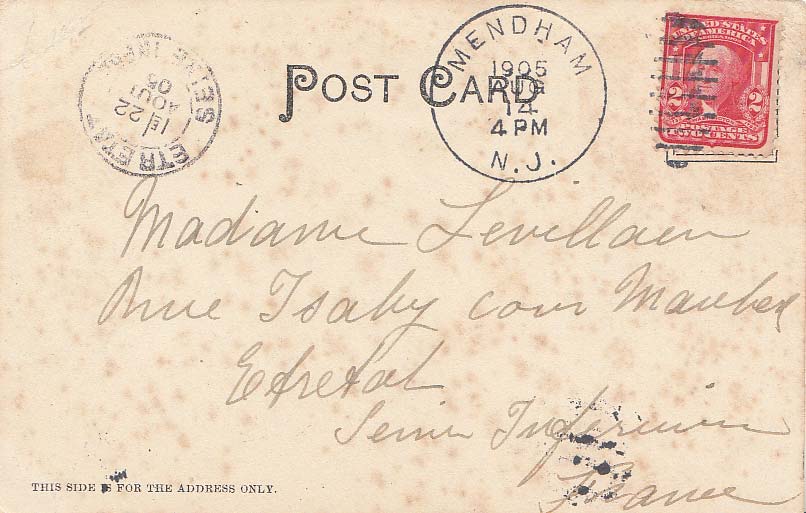 POST CARD
MENDHAM
1905
AUG
14
4 PM
N. J.
ETRETAT
1E/22
AOUT
05
SEINE INFRE
UNITED STATES
OF AMERICA
2 2
POSTAGE
TWO CENTS
Madame Levillain
Rue Isaby cour Maubert
Etretat
Seine Inferieure
France
THIS SIDE IS FOR THE ADDRESS ONLY.